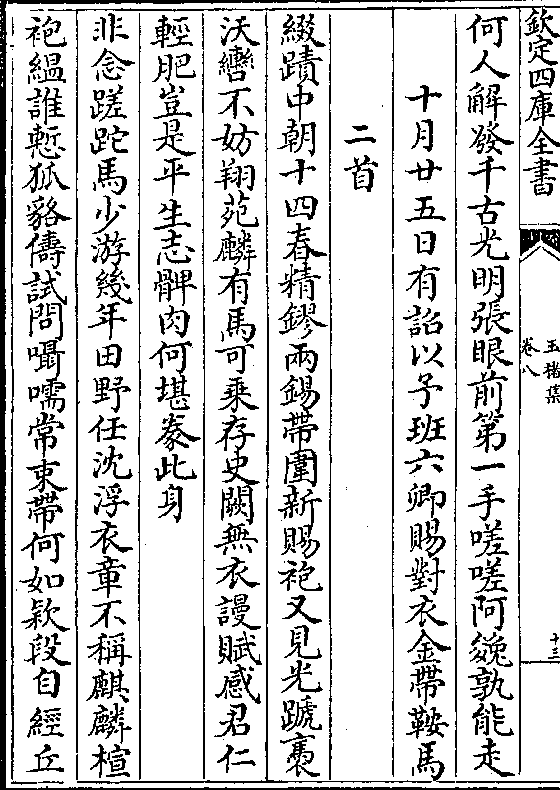 欽定四庫全書
玉楮集
卷八
十三
何人解發千古光明張眼前第一手嗟嗟阿巙孰能走
十月廿五日有詔以予班六卿賜對衣金帶鞍馬
二首
綴蹟中朝十四春精鏐兩錫帶圍新賜袍又見光蹏褭
沃轡不妨翔苑麟有馬可乗存史闕無衣謾賦感君仁
輕肥豈是平生志髀肉何堪豢此身
非念蹉跎馬少游幾年田野任沈浮衣章不稱麒麟楦
袍緼誰慙狐貉儔試問囁嚅常束帶何如欵段自經丘